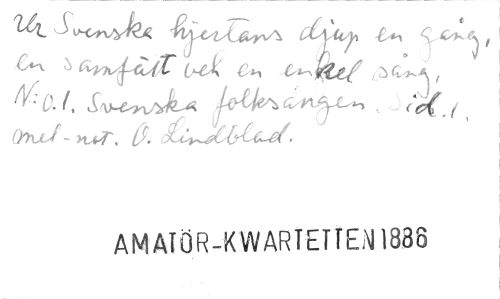 Ur Svenska hjertans djup en gång,
en samfält och en enkel sång,
N:o.1. Svenska folksången. Sid.1.
mel-not. O. Lindblad.
AMATÖR-KWARTETTEN 1886